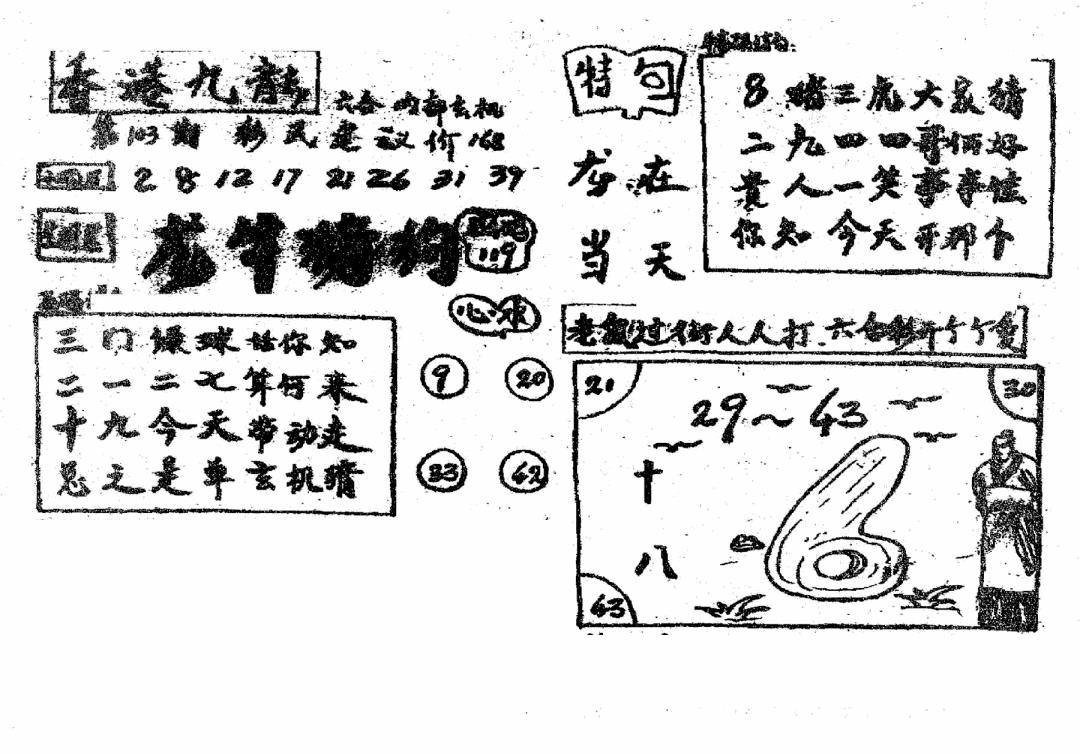 香港九龍
六合内部玄机
第103期 彩民建议价168
2 8 12 17 21 26 31 39
龙牛猪狗
119
心水
三门爆球话你知
二一二七算何来
十九今天带动走
总之是单玄机猜
9 20
33 42
特句
龙在
当天
8猪三虎大家猜
二九四四哥俩好
贵人一笑事事佳
你知今天开那个
老鼠过街人人打.六合彩开个个
21 30
29~43
十
八
43